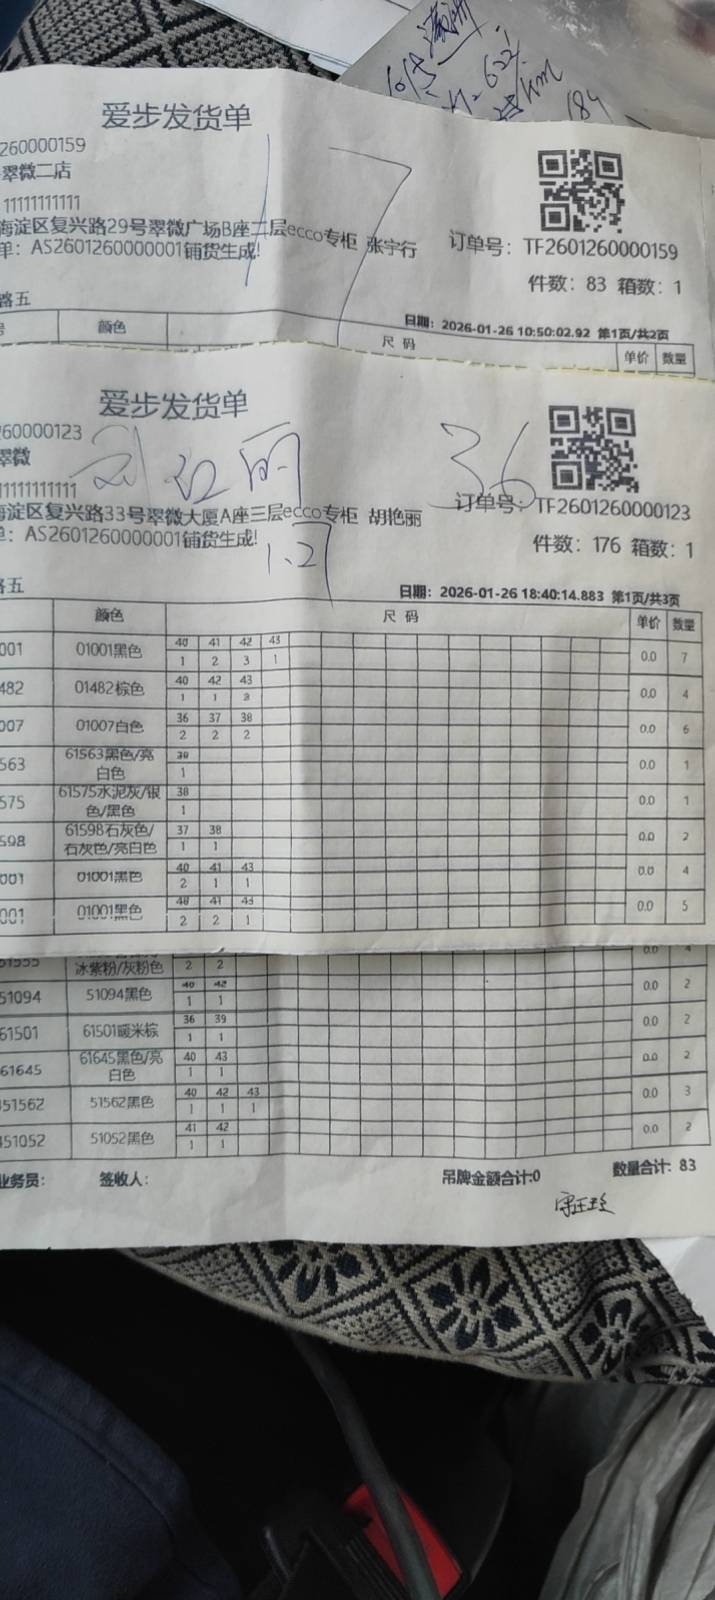 爱步发货单
260000159
翠微二店
11111111111
海淀区复兴路29号翠微广场B座二层ecco专柜 张宇行 订单号：TF2601260000159
单：AS2601260000001铺货生成!
件数：83 箱数：1
17
路五
日期：2026-01-26 10:50:02.92 第1页/共2页
号 颜色 尺 码 单价 数量
爱步发货单
60000123
翠微
刘红丽
36
11111111111
海淀区复兴路33号翠微大厦A座三层ecco专柜 胡艳丽 订单号：TF2601260000123
单：AS2601260000001铺货生成!
1.27
件数：176 箱数：1
路五
日期：2026-01-26 18:40:14.883 第1页/共3页
颜色 尺 码 单价 数量
40 41 42 43
001 01001黑色 0.0 7
1 2 3 1
40 42 43
482 01482棕色 0.0 4
1 1 2
36 37 38
007 01007白色 0.0 6
2 2 2
563 61563黑色/亮白色 38 0.0 1
1
575 61575水泥灰/银色/黑色 38 0.0 1
1
598 61598石灰色/石灰色/亮白色 37 38 0.0 2
1 1
40 41 43
001 01001黑色 0.0 4
2 1 1
40 41 43
001 01001黑色 0.0 5
2 2 1
冰紫粉/灰粉色 2 2 0.0 4
40 42
51094 51094黑色 0.0 2
1 1
36 39
61501 61501暖米棕 0.0 2
1 1
61645 61645黑色/亮白色 40 43 0.0 2
1 1
40 42 43
451562 51562黑色 0.0 3
1 1 1
41 42
451052 51052黑色 0.0 2
1 1
业务员： 签收人： 吊牌金额合计:0 数量合计：83